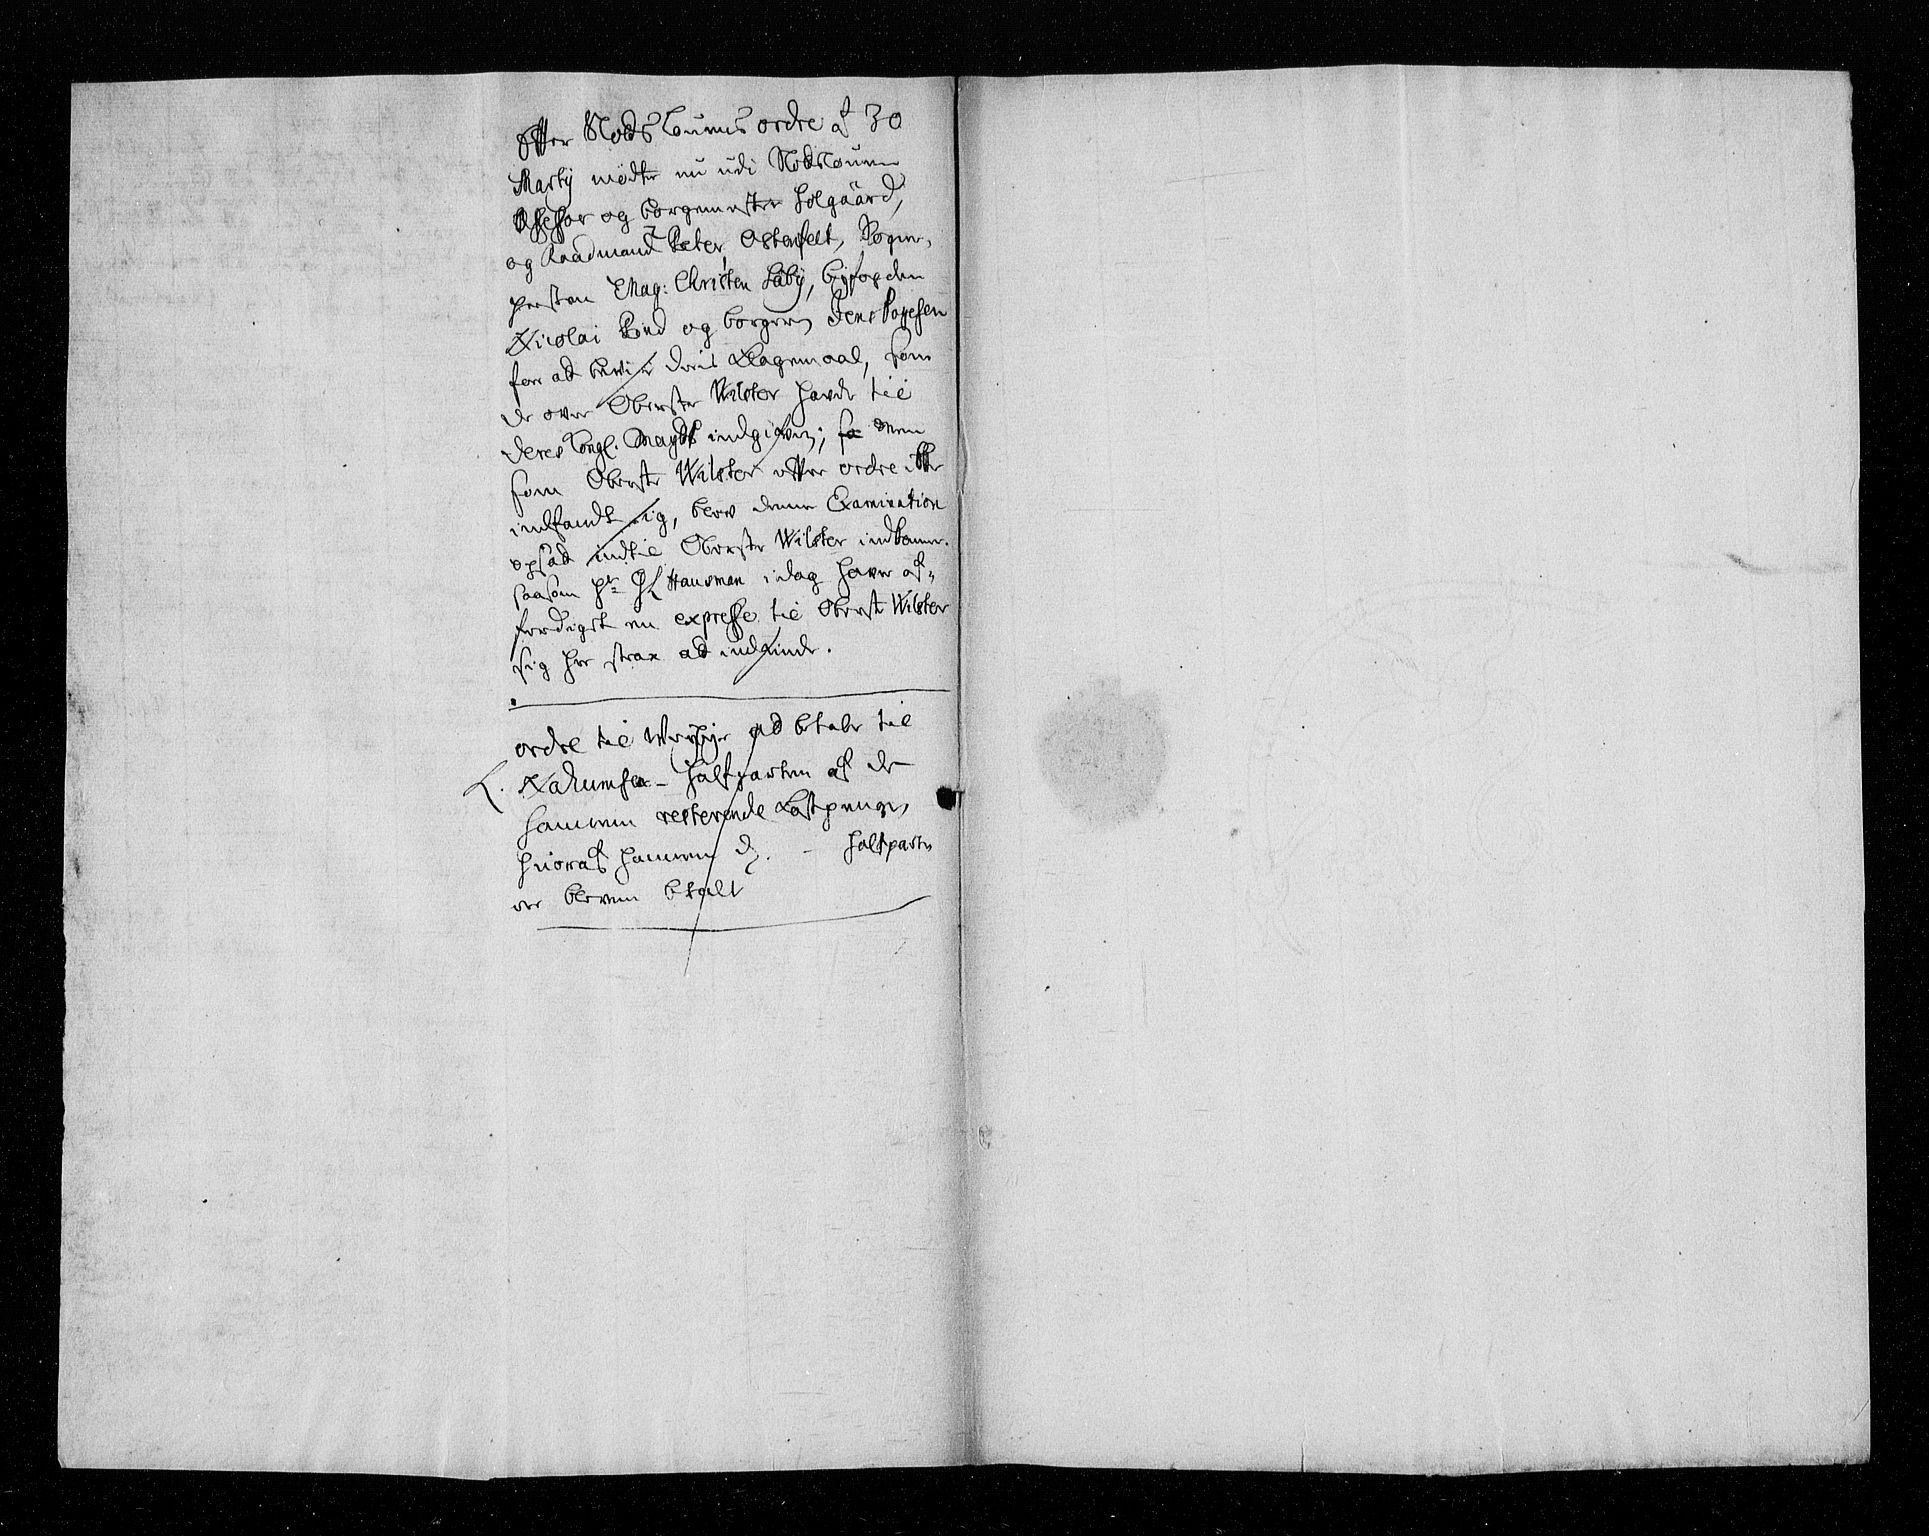 Efter Slods Louens ordre af 30
Martij mødte nu udi Slodslouen
Assessor og borgemester Solgaard,
og Raadmand Peter Ostenfelt, Sogne-
presten Mag: Christen Laby, byfogden
Nicolai Bond og borgeren Jens Poppesen
for ad bevise deris Klagemaal, som
de over Oberste Wilster hafde til
deres Kongl. Mayst indgifven; men
som Oberste Wilster efter ordre icke
indfandt sig, blev denne Examination
opsad indtil Oberste Wilster indkommer.
saasom Hr GL Hausman idag hafver af-
ferdiget en expresse til Oberst Wilster
sig her strax ad indfinde.
ordre til ad betale til
L. halfparten af de
hannem resterende Kostpenge,
hvoraf hannem d. - halfparten
er bleven betalt